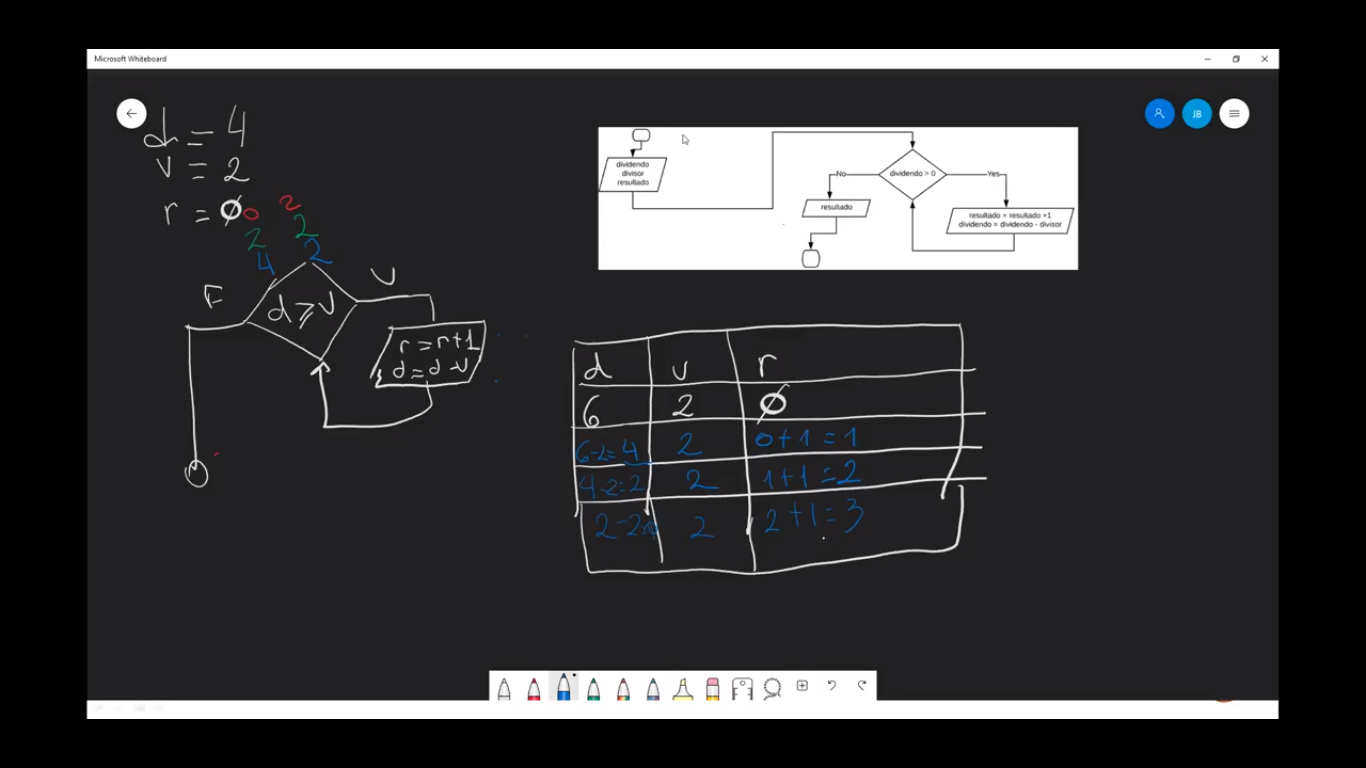 Microsoft Whiteboard
JB
d = 4
v = 2
r = Ø 0 2
2 2
4 2
F
d ⩾ v
V
r = r+1
d = d-v
dividendo
divisor
resultado
No
dividendo > 0
Yes
resultado
resultado = resultado +1
dividendo = dividendo - divisor
d v r
6 2 Ø
6-2=4 2 0+1=1
4-2=2 2 1+1=2
2-2=0 2 2+1=3